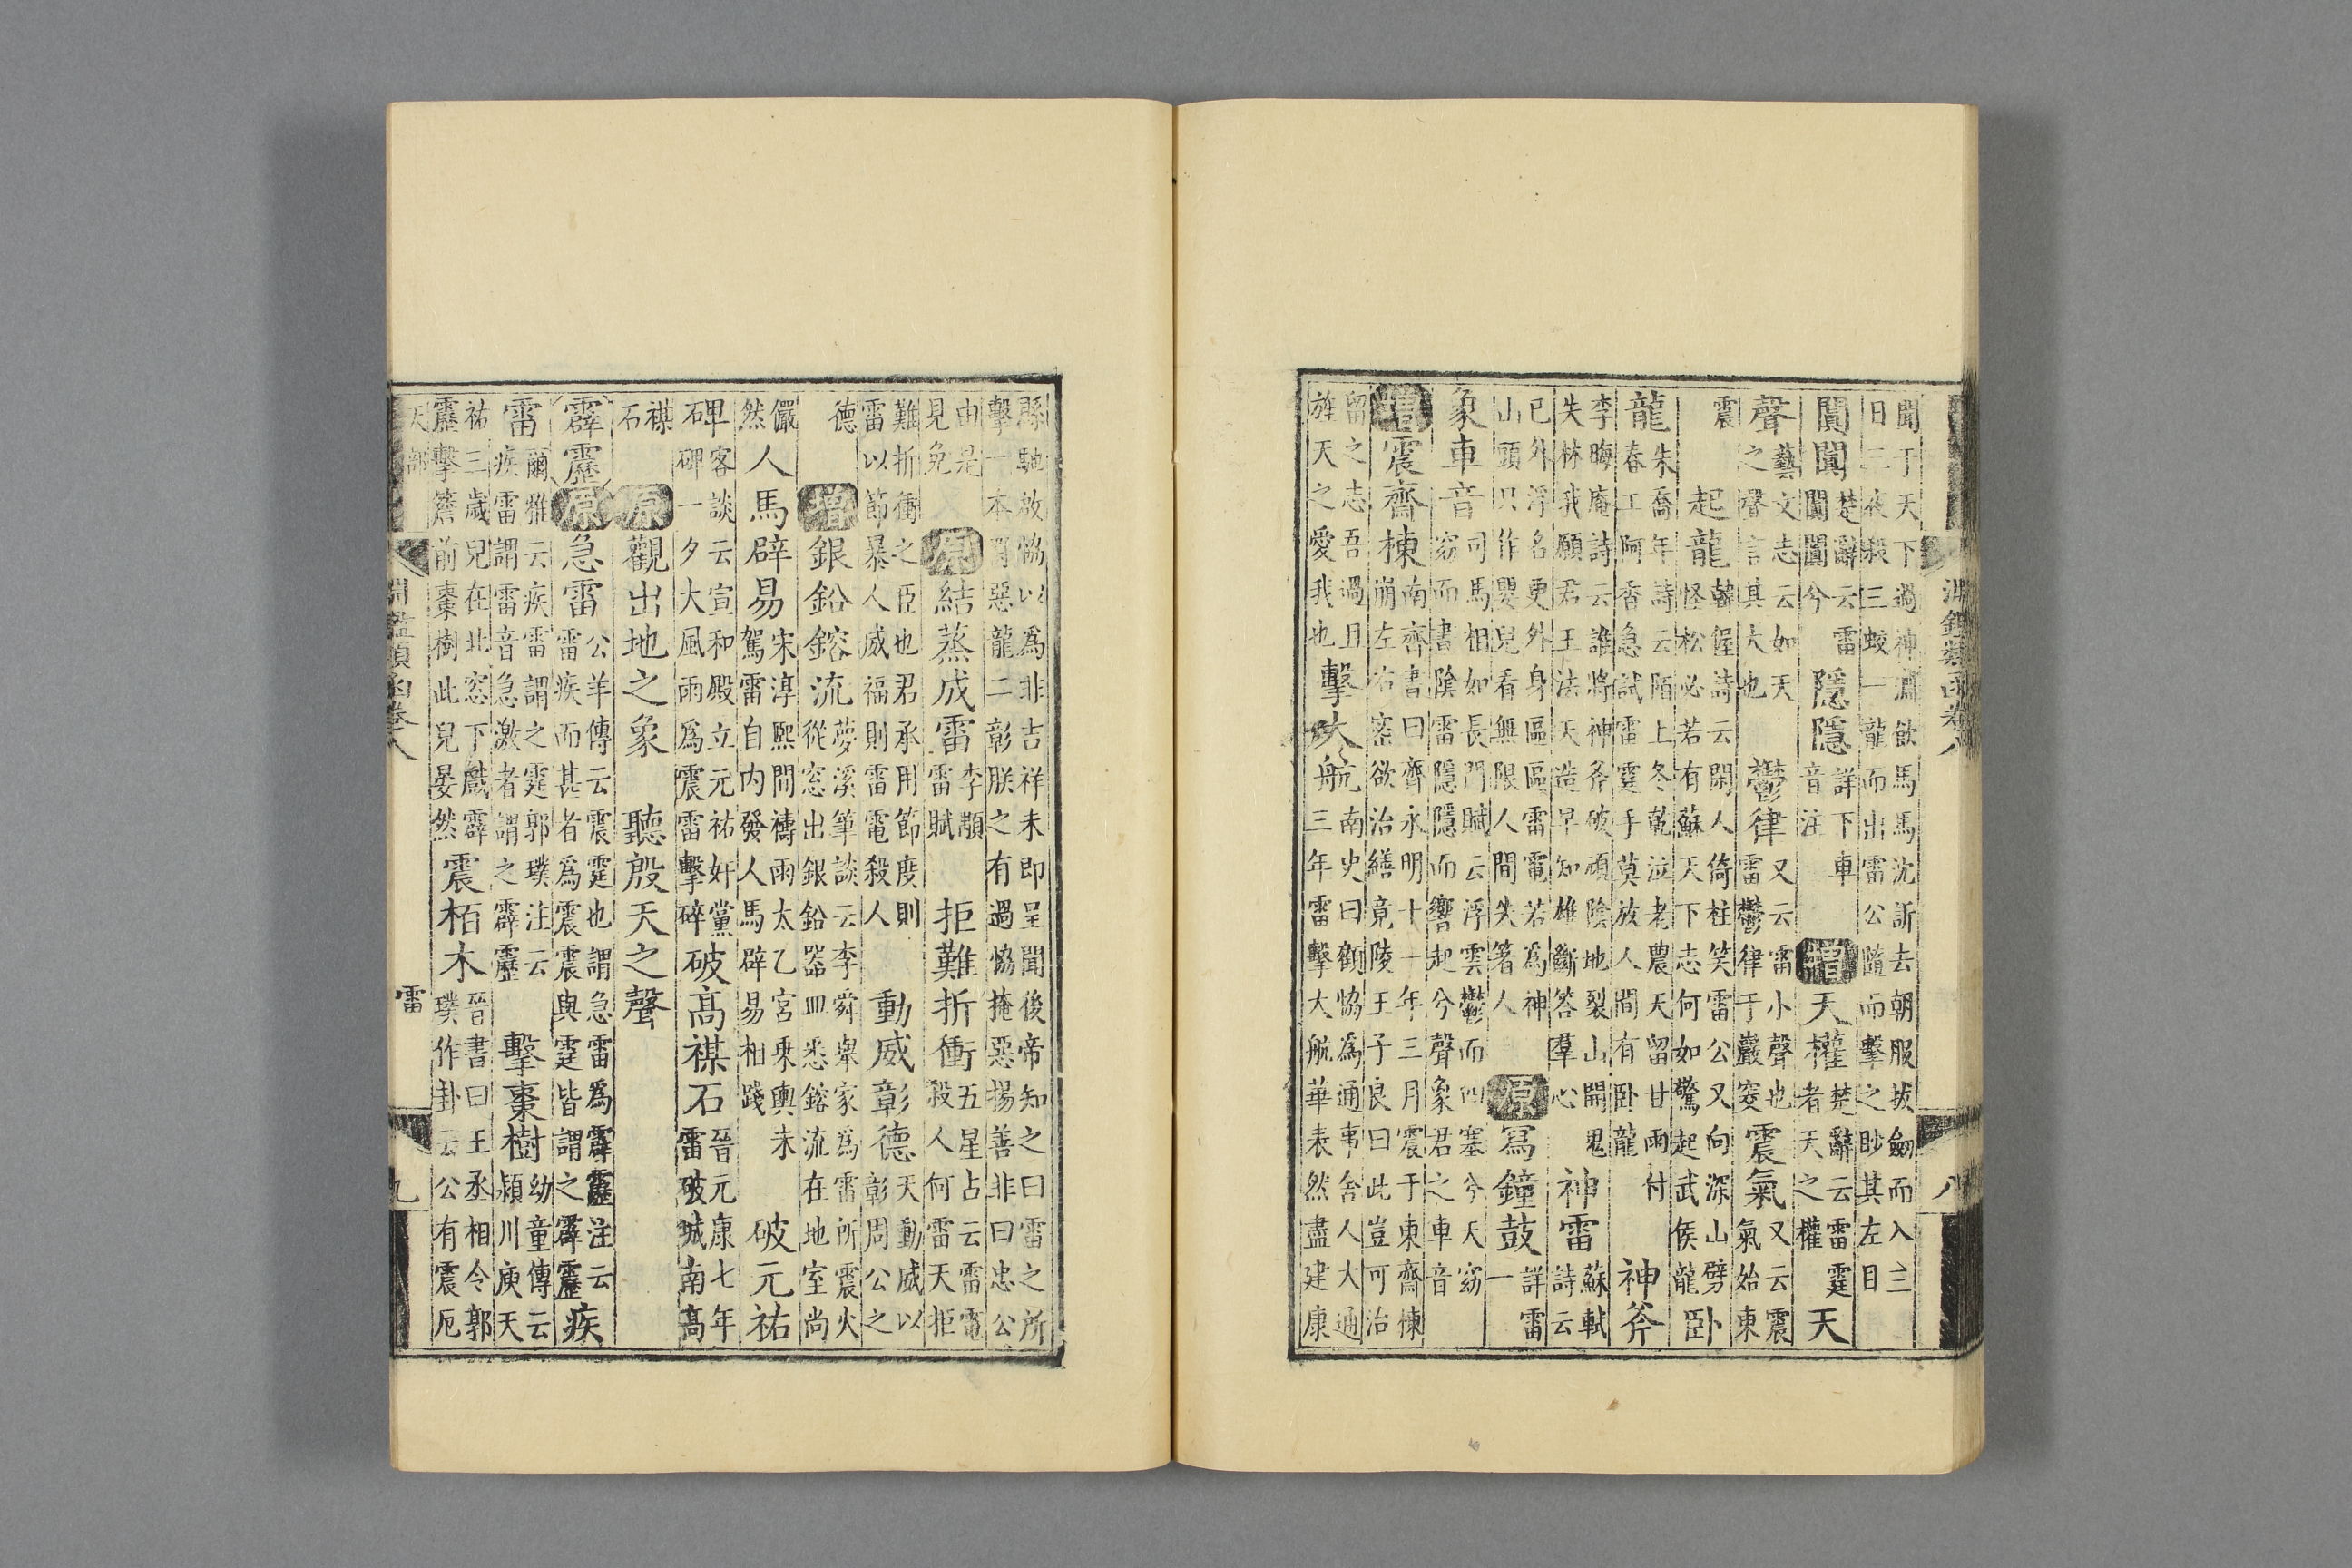 淵鑑類函卷八
八
聞于天下過神淵飲馬馬沈訢去朝服拔劔而入三
日三夜殺三蛟一龍而出雷公隨而擊之眇其左目
闐闐楚辭云雷闐闐兮隱隱音注詳下車增天權楚辭云雷霆者天之權天
聲藝文志云如天之聲言其大也鬱律又云雷小聲也雷鬱律于巖窔震氣又云震氣始東
震起龍韓偓詩云閒人倚柱笑雷公又向深山劈怪松必若有蘇天下志何如驚起武侯龍卧
龍朱喬年詩云陌上冬乾泣老農天留甘雨付春工阿香急試雷霆手莫放人間有卧龍神斧
李晦庵詩云誰將神斧破頑陰地裂山開鬼失林我願君王法天造早知雄斷答羣心神雷蘇軾詩云
已外浮名更外身區區雷電若為神山頭只作嬰兒看無限人間失箸人原寫鐘鼓詳雷一
象車音司馬相如長門賦云浮雲鬱而四塞兮天窈窈而晝陰雷隱隱而響起兮聲象君之車音
增震齊棟南齊書曰齊永明十一年三月震于東齋棟崩左右密欲治繕竟陵王子良曰此豈可治
留之志吾過且旌天之愛我也擊大航南史曰顧恊為通事舍人大通三年雷擊大航華表然盡建康
縣馳啟恊以為非吉祥未即呈聞後帝知之曰雷之所
擊一本罰惡龍二彰朕之有過恊掩惡揚善非曰忠公
由是見免原結蒸成雷李顒雷賦拒難折衝五星占云雷電殺人何雷天拒
難折衝之臣也君承用節度則雷以節暴人威福則雷電殺人動威彰德天動威以彰周公之
德增銀鉛鎔流夢溪筆談云李舜舉家為雷所震火從窓出銀鉛器皿悉鎔流在地室尚
儼然人馬辟易宋淳熙間禱雨太乙宮乘輿未駕雷自內發人馬辟易相踐破元祐
碑甲客談云宣和殿立元祐奸黨碑一夕大風雨為震雷擊碎破高禖石晉元康七年雷破城南高
禖石原觀出地之象聽殷天之聲
霹靂原急雷公羊傳云震霆也謂急雷為霹靂注云雷疾而甚者為震震與霆皆謂之霹靂疾
雷爾雅云疾雷謂之霆郭璞注云疾雷謂雷音急激者謂之霹靂擊棗樹幼童傳云潁川庾天
祐三歲兒在北窓下戲霹靂擊簷前棗樹此兒晏然震栢木晉書曰王丞相令郭璞作卦云公有震厄
天部
淵鑑類函卷八
雷
九